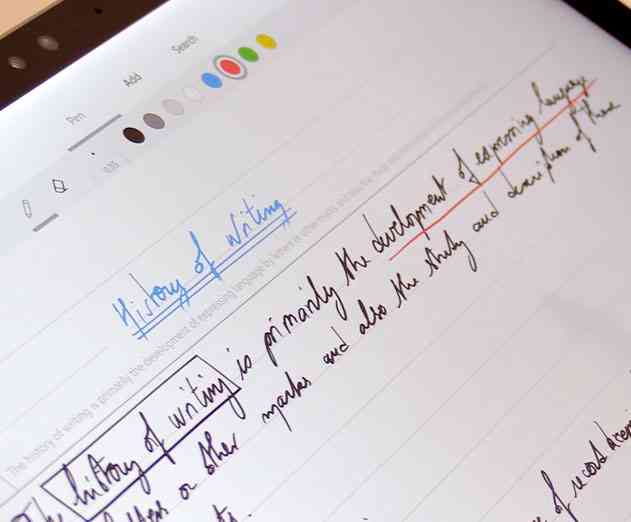 Pen Add Search
0.35
History of Writing
The history of writing is primarily the development of expressing language by letters or other marks and also the
The history of writing is primarily the development of expressing language
letters or other marks and also the study and description of these
of record